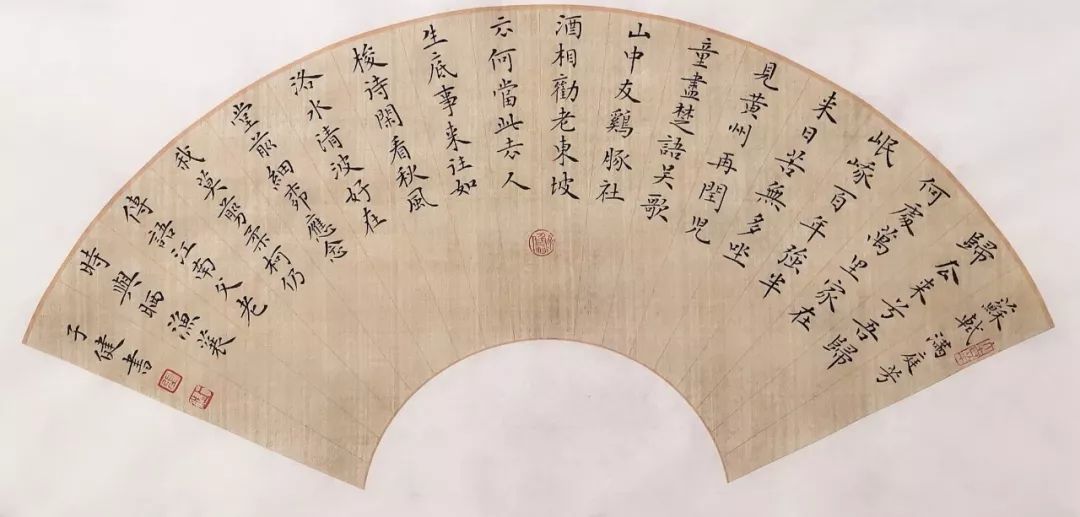 蘇軾滿庭芳
歸去來兮吾歸
何處萬里家在
岷峨百年強半
来日苦無多坐
見黄州再閏児
童盡楚語吳歌
山中友鷄豚社
酒相勸老東坡
云何當此去人
生底事来往如
梭待閑看秋風
洛水清波好在
堂前細柳應念
我莫剪柔柯仍
傳語江南父老
時與晒漁蓑
子健書